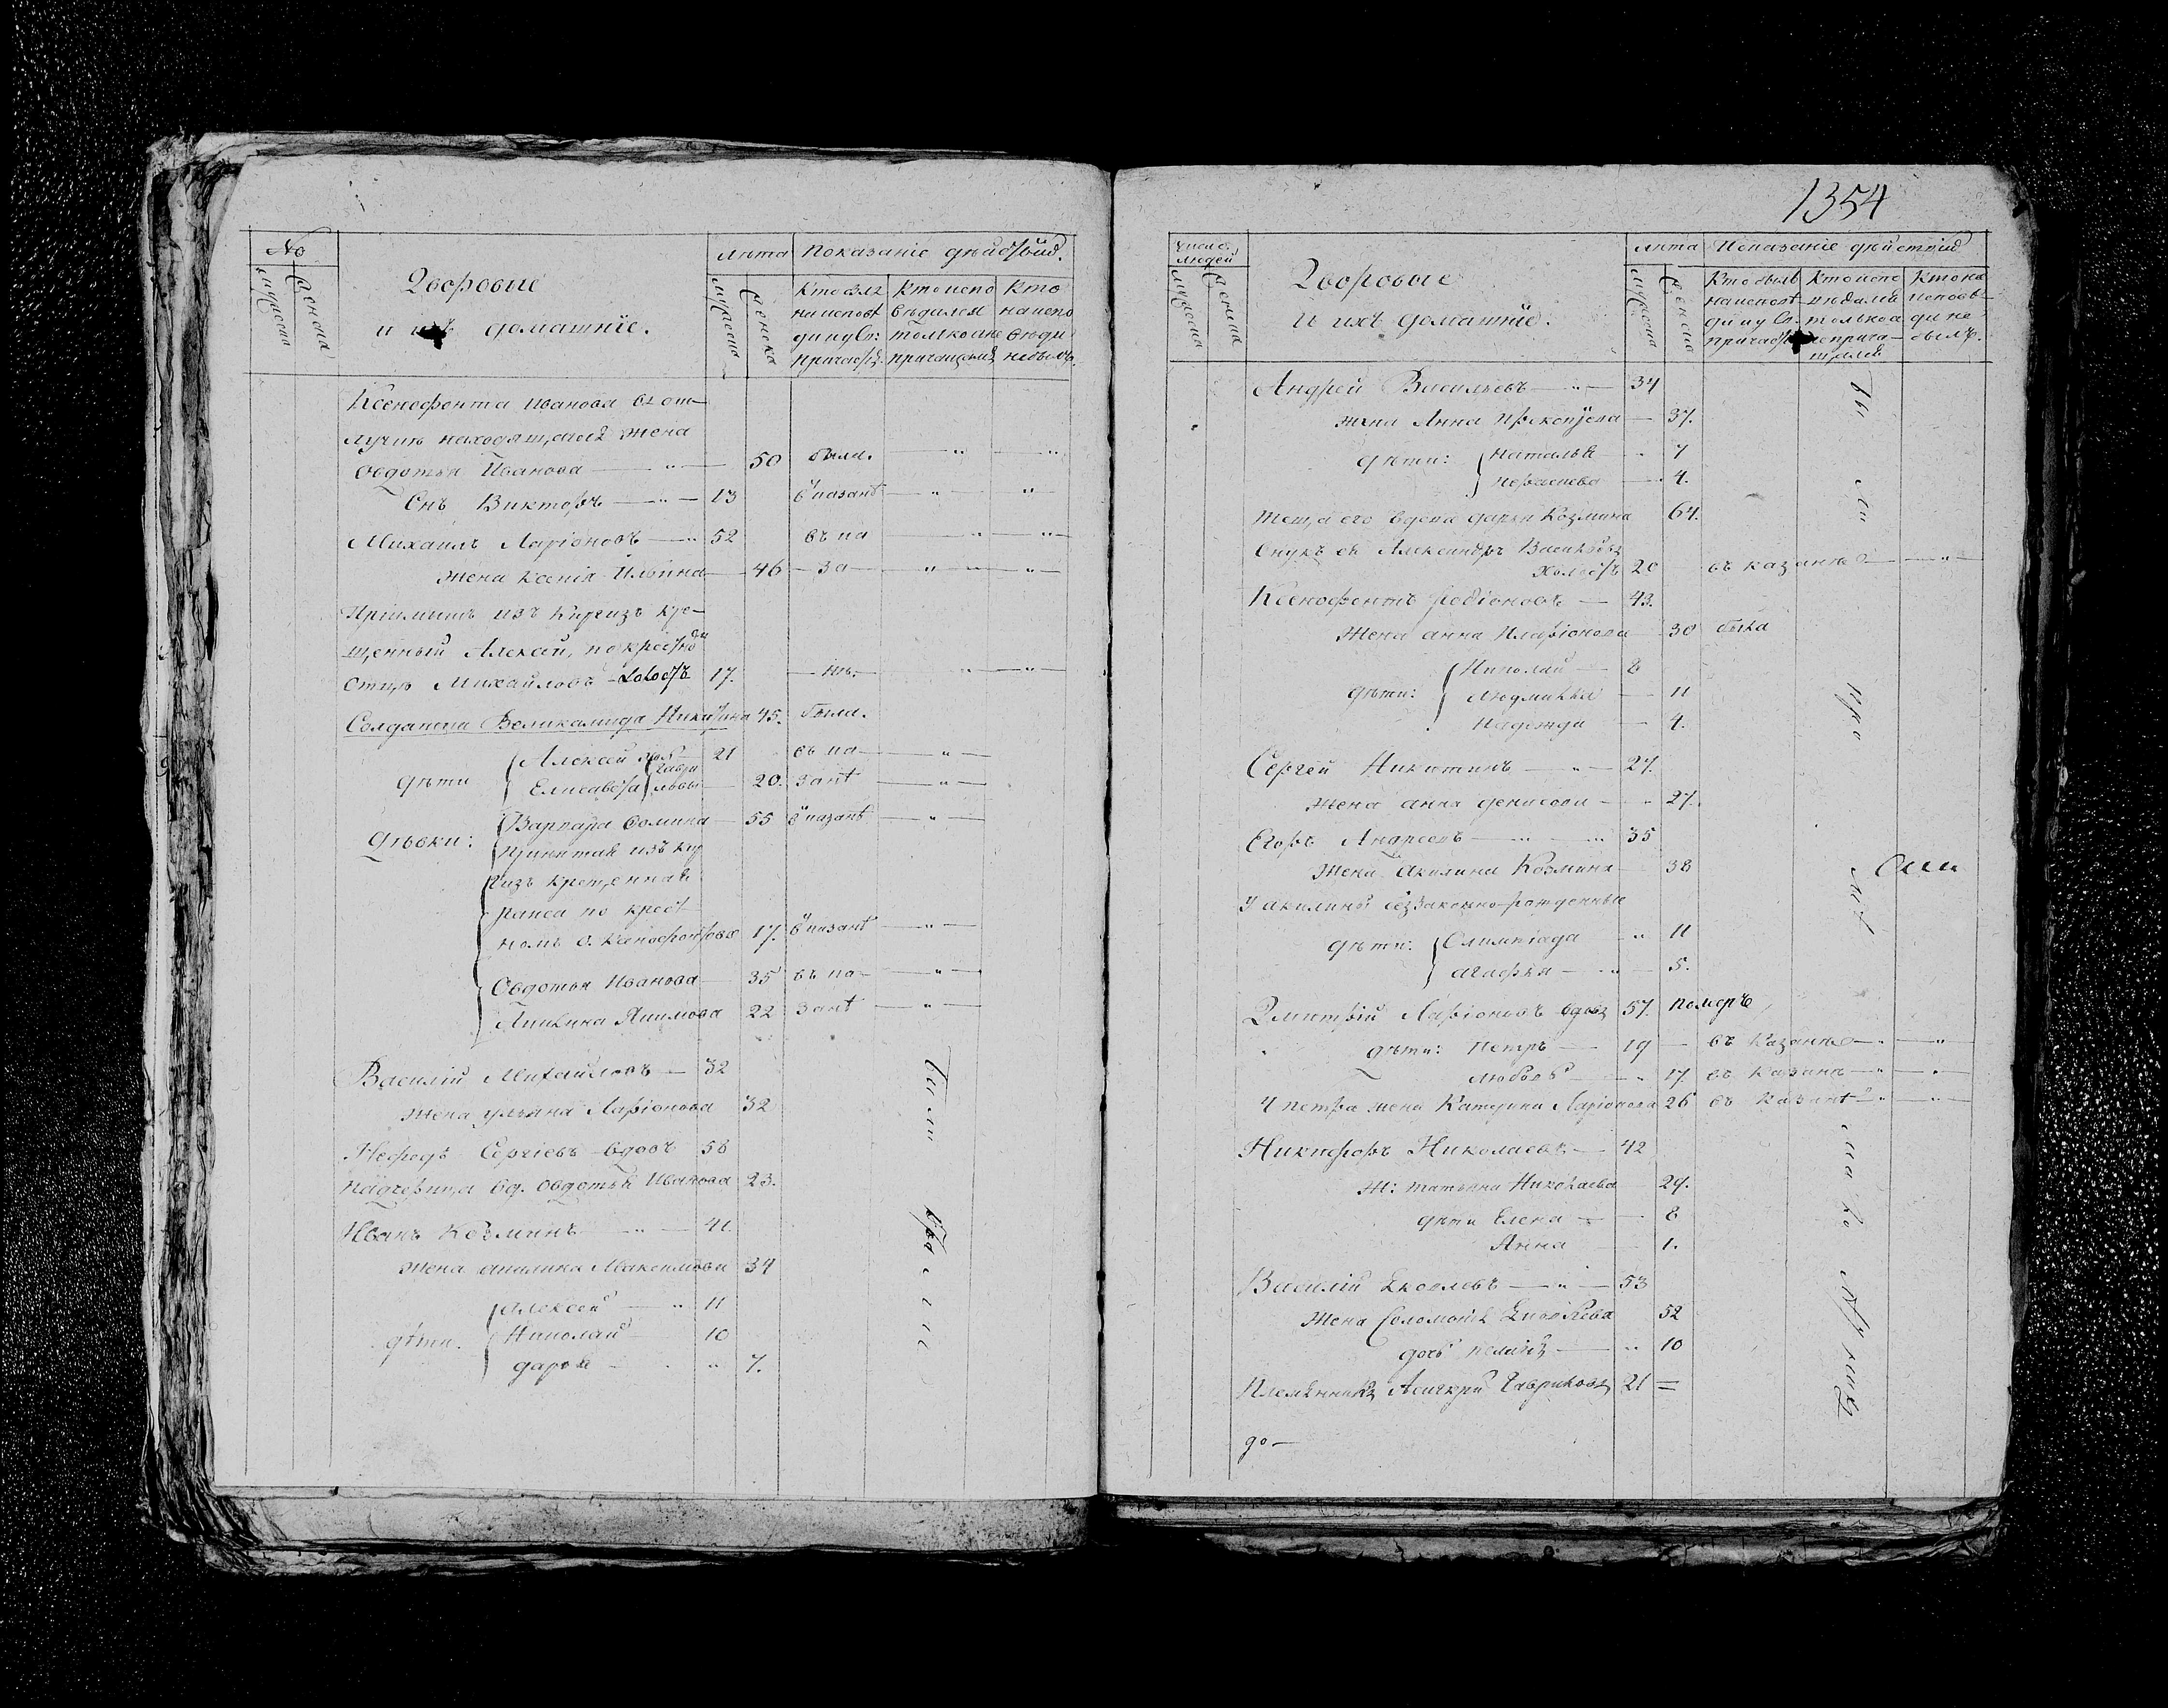 №
мужеска
женска
Дворовые
и ихъ домашніе.
лѣта
мужеска
женска
Показаніе дѣйствій.
Кто былъ на исповѣди и у Св: причастія
Кто исповѣдался толко а не причащался
Кто на исповѣди не былъ
Ксенофонта Иванова въ от-
лучкѣ находящагося жена
Овдотья Иванова 50 были.
Снъ Викторъ 13 в казанѣ
Михаилъ Ларіоновъ 52 въ ка
жена Ксенія Ильина 46 за
Пріимышъ изъ Киргизъ кре-
щенный Алексѣй, по крестно
отцѣ Михайловъ 17. нѣ.
Солдатка Великанида Никитина 45. были.
дѣти Алексѣй 21 въ ка
Елисавета 20. занѣ
дѣвки: Варвара Фомина 55 в казанѣ
Принятая изъ кир
гизъ крещенная
Раиса по крест
номъ о. Ксенофонтова 17. в казанѣ
Овдотья Иванова 35 въ ка
Акилина Якимова 22 занѣ
Василій Михайловъ 32
жена ульяна Ларіонова 32
Нефедъ Сергіевъ вдовъ 58
Падчерица вд. Овдотья Иванова 23.
Иванъ Козминъ 41.
жена акилина Максимова 34
дѣти. Алексѣй 11
Николай 10
дарья 7.
1354
число людей
мужеска
женска
Дворовые
и ихъ домашніе.
лѣта
мужеска
женска
Показаніе дѣйствій
Кто былъ на исповѣди и у Св. причастія
Кто исповѣдался только а не причащался
Кто на исповѣди не былъ.
Андрей Васильевъ 34
жена Анна Прокопьева 37.
дѣти: Наталья 7
Парасковья 4.
теща его вдова дарья Козмина 64.
внукъ ея Александръ Васильевъ
20 въ казанѣ
Ксенофонтъ Родіоновъ 43.
жена анна Иларіонова 30 была
дѣти: Николай 8
Людмилла 11
Надежда 4.
Сергѣй Никитинъ 27.
жена анна денисова 27.
Егоръ Андреевъ 35
жена акилина Козмина 38
У акилины беззаконно-рожденные
дѣти: Олимпіада 11
агафья 5.
Дмитрій Ларіоновъ вдовъ 57. померъ
дѣти: Петръ 19 въ Казанѣ
Любовь 17. въ Казанѣ
У петра жена Катерина Ларіонова 26 въ Казанѣ
Никифоръ Николаевъ 42
Ж: татьяна Николаева 29.
дѣти Елена 8
Анна 1.
Василій Яковлевъ 53
жена Соломонія Яковлева 52
дочь 10
Племянникъ Гавриловъ 21
до